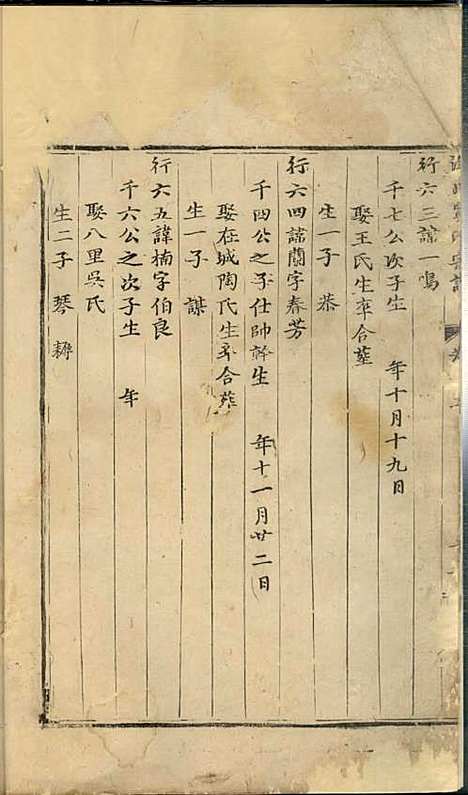 行六三諱一鳴
千七公次子生　年十月十九日
娶王氏生卒合塟
生一子　恭
行六四諱蘭字春芳
千四公之子仕帥幹生　年十一月廿二日
娶在城陶氏生卒合葬
生一子　諆
行六五諱楠字伯良
千六公之次子生　年
娶八里吳氏
生二子　琴　耨